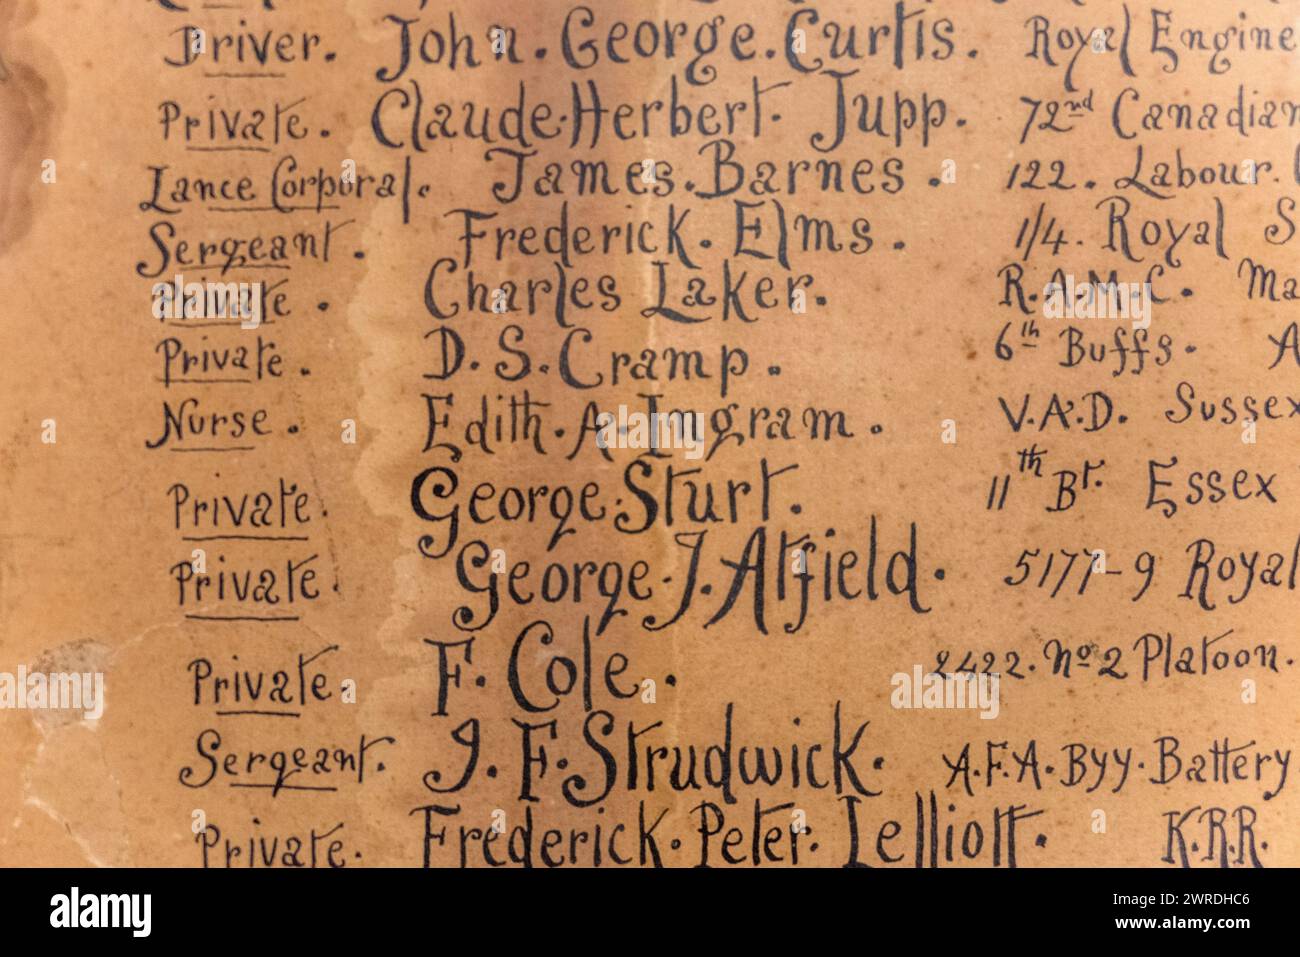 Driver. John. George. Curtis. Royal Engine
Private. Claude. Herbert. Jupp. 72nd Canadian
Lance Corporal. James. Barnes. 122. Labour.
Sergeant. Frederick. Elms. 1/4. Royal S
Private. Charles Laker. R.A.M.C. Ma
Private. D. S. Cramp. 6th Buffs. A
Nurse. Edith. A. Ingram. V.A.D. Sussex
Private. George. Sturt. 11th Bt. Essex
Private. George. J. Atfield. 5177-9 Royal
Private. F. Cole. 2422. No 2 Platoon.
Sergeant. J. F. Strudwick. A.F.A. Byy. Battery
Private. Frederick. Peter. Lelliott. K.R.R.
alamy
Image ID: 2WRDHC6
www.alamy.com